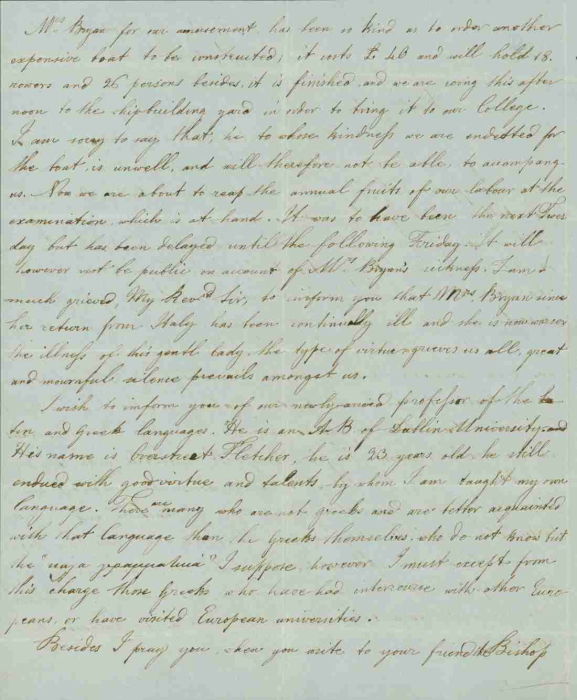 Mrs Bryan for our amusement, has been so kind as to order another
expensive boat to be constructed; it costs £ 40 and will hold 18.
rowers and 26 persons besides, it is finished, and we are going this after
noon to the shipbuilding yard in order to bring it to our College.
I am sorry to say that, he to whose kindness we are endetted for
the boat is unwell, and will therefore not be able, to accompany
us. Now we are about to reap the annual fruits of our labour at the
examination, which is at hand. It was to have been the next Tues
day but has been delayed until the following Friday. It will
however not be public on account of Mrs Bryan's sickness. I am
much grieved, My Revd Sir, to inform you that Mrs Bryan since
her return from Italy has been continually ill and she is now worse
the illness of this gentle lady, the type of virtue grieves us all, great
and mournful silence prevails amongst us.
I wish to inform you of our newly arrived professor of the La
tin and Greek languages. He is an A B of Dublin University and
His name is Overstreet Fletcher, he is 23 years old, he still
endued with good virtue and talents, by whom I am taught my own
language. There are many who are not greeks and are better acquainted
with that language than the Greeks themselves, who do not know but
the " " I suppose, however I must except from
this charge those Greeks who have had intercourse with other Euro
peans, or have visited European universities.
Besides I pray you, when you write to your friend Bishop